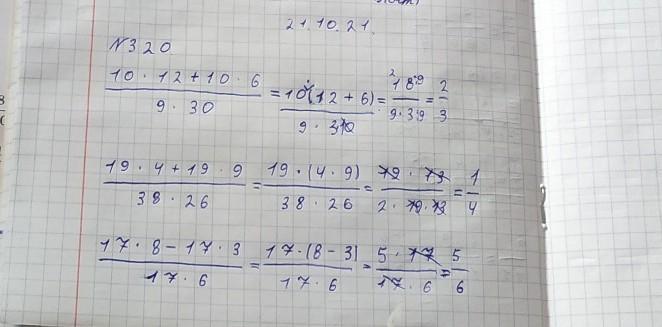 21.10.21.
N320
10·12+10·6 / 9·30 = 10·(12+6) / 9·30 = 18 / 9·3 = 2/3
19·4+19·9 / 38·26 = 19·(4·9) / 38·26 = 19·13 / 2·19·13 = 1/4
17·8-17·3 / 17·6 = 17·(8-3) / 17·6 = 5·17 / 17·6 = 5/6